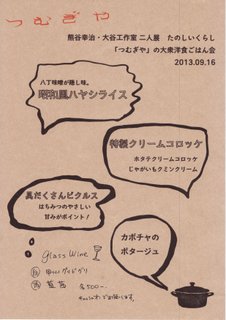 つむぎや
熊谷幸治・大谷工作室 二人展 たのしいくらし
「つむぎや」の大衆洋食ごはん会
2013.09.16
八丁味噌が隠し味。
昭和風ハヤシライス
特製クリームコロッケ
ホタテクリームコロッケ
じゃがいもクミンクリーム
具だくさんピクルス
はちみつのやさしい
甘みがポイント!
カボチャの
ポタージュ
glass wine
各500-